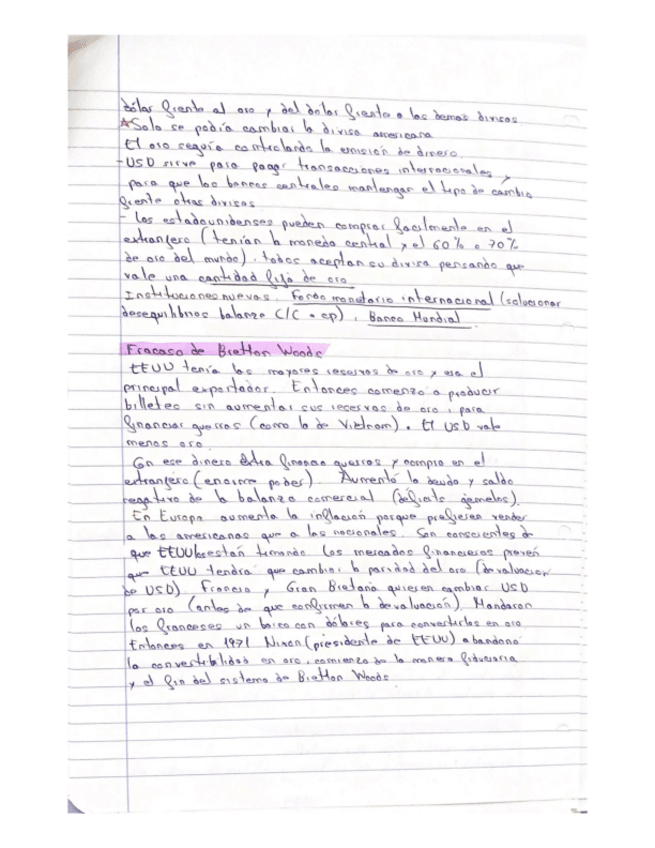 dólar frente al oro y del dólar frente a las demas divisas
*Solo se podía cambiar la divisa americana
El oro seguía controlando la emisión de dinero.
-USD sirve para pagar transacciones internacionales y
para que los bancos centrales mantengan el tipo de cambio
frente otras divisas
- Los estadounidenses pueden comprar facilmente en el
extranjero (tenían la moneda central y el 60% o 70%
de oro del mundo). todos aceptan su divisa pensando que
vale una cantidad fija de oro
Instituciones nuevas. Fondo monetario internacional (solucionar
desequilibrios balanza C/C a cp), Banco Mundial.
Fracaso de Bretton Woods
EEUU tenía las mayores reservas de oro y era el
principal exportador. Entonces comenzo a producir
billetes sin aumentar sus reservas de oro, para
financiar guerras (como la de Vietnam). El USD vale
menos oro.
Con ese dinero extra financia guerras y compra en el
extranjero (enorme poder). Aumentó la deuda y saldo
negativo de la balanza comercial (deficits gemelos).
En Europa aumenta la inflación porque prefieren vender
a los americanos que a los nacionales. Son conscientes de
que EEUU les están timando. Los mercados financieros prevén
que EEUU tendrá que cambiar la paridad del oro (devaluación
de USD). Francia y Gran Bretaña quieren cambiar USD
por oro (antes de que confirmen la devaluación). Mandaron
los franceses un barco con dólares para convertirlos en oro
Entonces en 1971 Nixon (presidente de EEUU) abandona
la convertibilidad en oro, comienzo de la moneda fiduciaria
y el fin del sistema de Bretton Woods